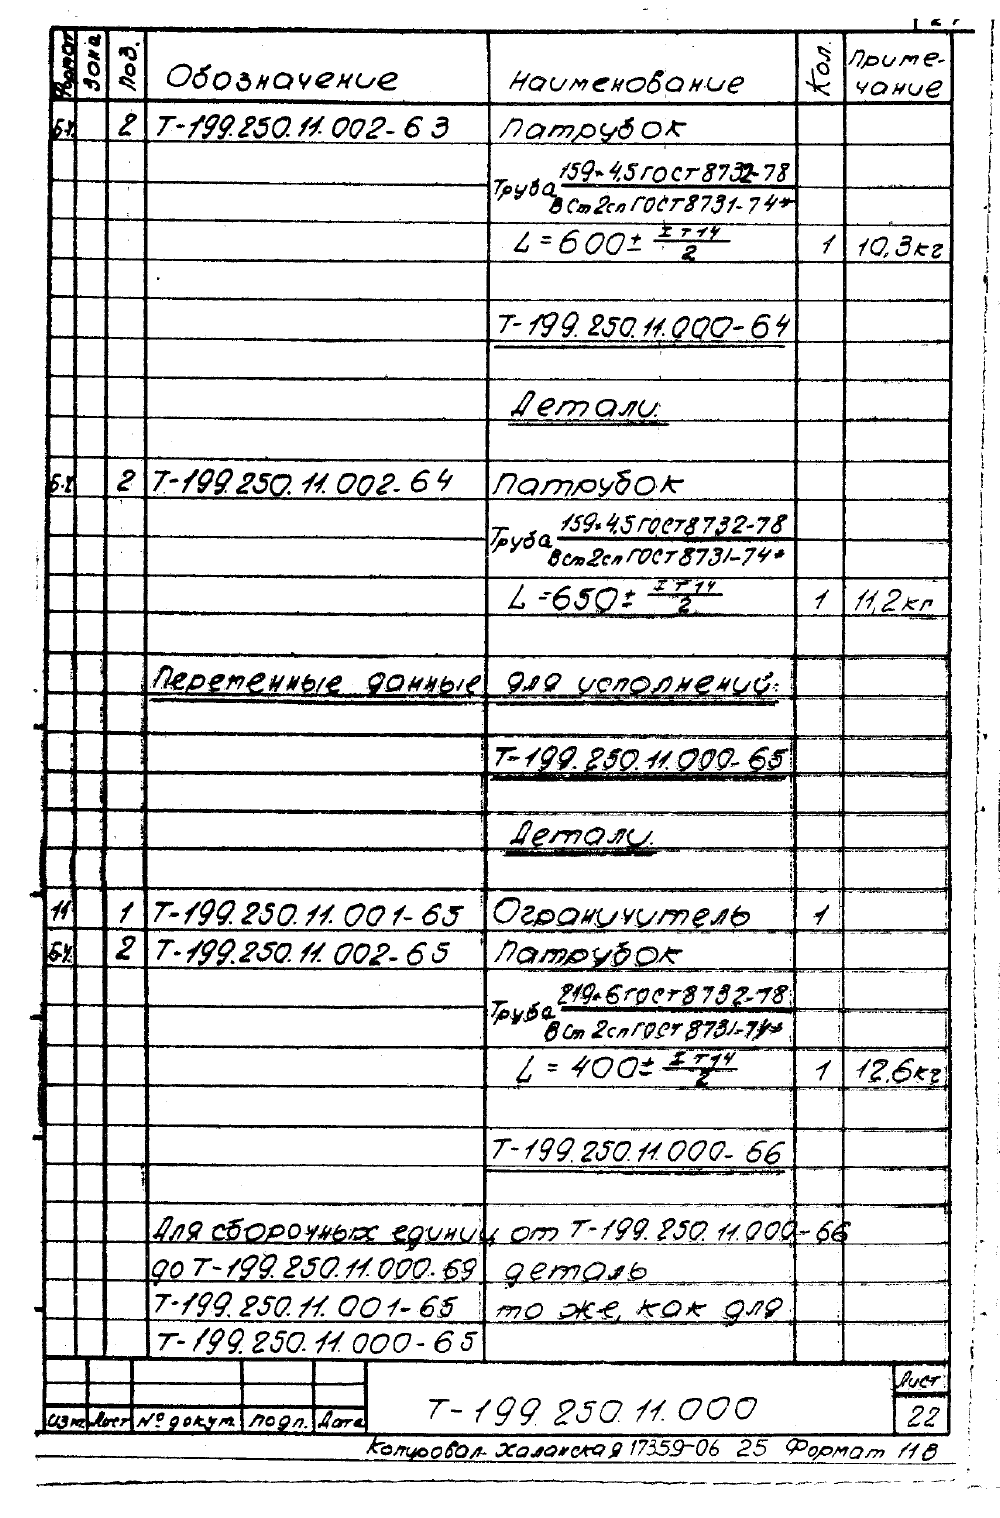 Формат Зона Поз. Обозначение Наименование Кол. Приме-
чание
Б.ч. 2 Т-199.250.11.002-63 Патрубок
Труба 159×4,5 ГОСТ 8732-78
ВСт2сп ГОСТ 8731-74*
L=600± IT14/2 1 10,3кг
Т-199.250.11.000-64
Детали.
Б.ч. 2 Т-199.250.11.002-64 Патрубок
Труба 159×4,5 ГОСТ 8732-78
ВСт2сп ГОСТ 8731-74*
L=650± IT14/2 1 11,2кг
Переменные данные для исполнений:
Т-199.250.11.000-65
Детали.
11 1 Т-199.250.11.001-65 Ограничитель 1
Б.ч. 2 Т-199.250.11.002-65 Патрубок
Труба 219×6 ГОСТ 8732-78
ВСт2сп ГОСТ 8731-74*
L=400± IT14/2 1 12,6кг
Т-199.250.11.000-66
Для сборочных единиц от Т-199.250.11.000-66
до Т-199.250.11.000-69 деталь
Т-199.250.11.001-65 то же, как для
Т-199.250.11.000-65
Изм. Лист № докум. Подп. Дата
Т-199.250.11.000
Лист
22
Копировал- Халанская 17359-06 25 Формат 11В